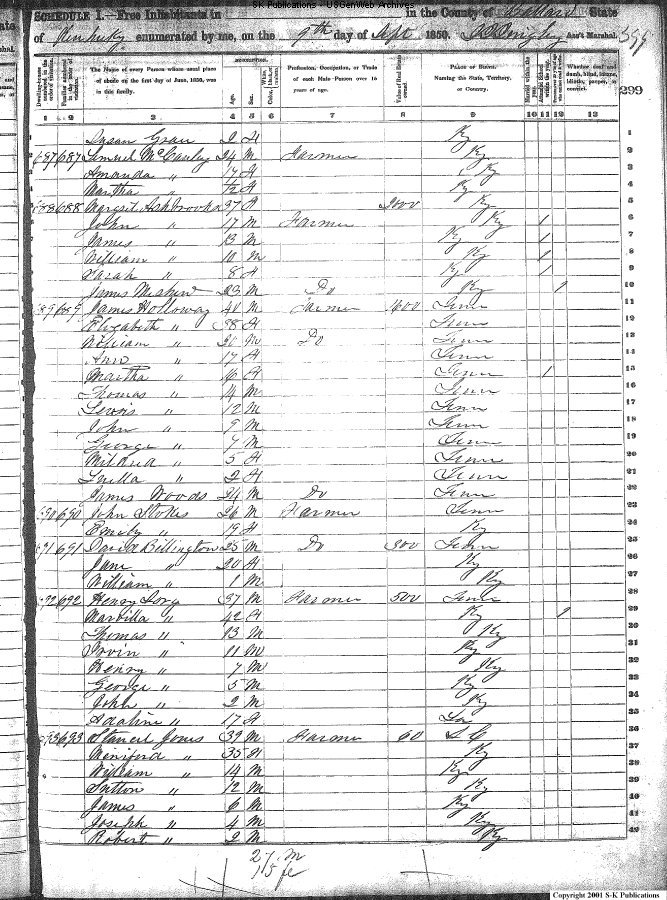 SK Publications - USGenWeb Archives
SCHEDULE I.—Free Inhabitants in in the County of Ballard State
of Kentucky enumerated by me, on the 9th day of Sept 1850. Ass't Marshal. 599
299
Dwelling-houses numbered in the order of visitation.
Families numbered in the order of visitation.
The Name of every Person whose usual place of abode on the first day of June, 1850, was in this family.
DESCRIPTION.
Age.
Sex.
Color, White, black, or mulatto.
Profession, Occupation, or Trade of each Male Person over 15 years of age.
Value of Real Estate owned.
PLACE OF BIRTH. Naming the State, Territory, or Country.
Married within the year.
Attended School within the year.
Whether deaf and dumb, blind, insane, idiotic, pauper, or convict.
1 2 3 4 5 6 7 8 9 10 11 12 13
Susan 2 f Ky 1
687 687 Samuel McCauley 24 M Farmer Ky 2
Amanda " 17 f Ky 3
Martha " 1/2 f Ky 4
688 688 Ashbrooks 37 f Ky 5
John " 17 M Farmer Ky 1 6
James " 13 M Ky 1 7
William " 10 M Ky 1 8
Sarah " 8 f Ky 1 9
James 23 M Do Ky 1 10
689 689 James Holloway 40 M Farmer 1600 Tenn 11
Elizabeth " 38 f Tenn 12
William " 20 M Do Tenn 13
Ann " 17 f Tenn 14
Martha " 16 f Tenn 1 15
Thomas " 14 M Tenn 16
Lewis " 12 M Tenn 17
John " 9 M Tenn 18
George " 7 M Tenn 19
" 5 f Tenn 20
" 2 f Tenn 21
James Woods 24 M Do Tenn 22
690 690 John Stokes 26 M Farmer Tenn 23
Emily " 19 f Ky 24
691 691 David Billington 25 M Do 300 Tenn 25
Jane " 20 f Ky 26
William " 1 M Ky 27
692 692 Henry 37 M Farmer 500 Tenn 28
" 42 f Ky 1 29
Thomas " 13 M Ky 30
Irvin " 11 M Ky 31
Henry " 7 M Ky 32
George " 5 M Ky 33
John " 2 M Ky 34
Adaline " 17 f 35
693 693 Jones 39 M Farmer 60 S C 36
" 35 f Ky 37
William " 14 M Ky 38
Sutton " 12 M Ky 39
James " 6 M Ky 40
Joseph " 4 M Ky 41
Robert " 2 M Ky 42
27 M
15 fe
Copyright 2001 S-K Publications